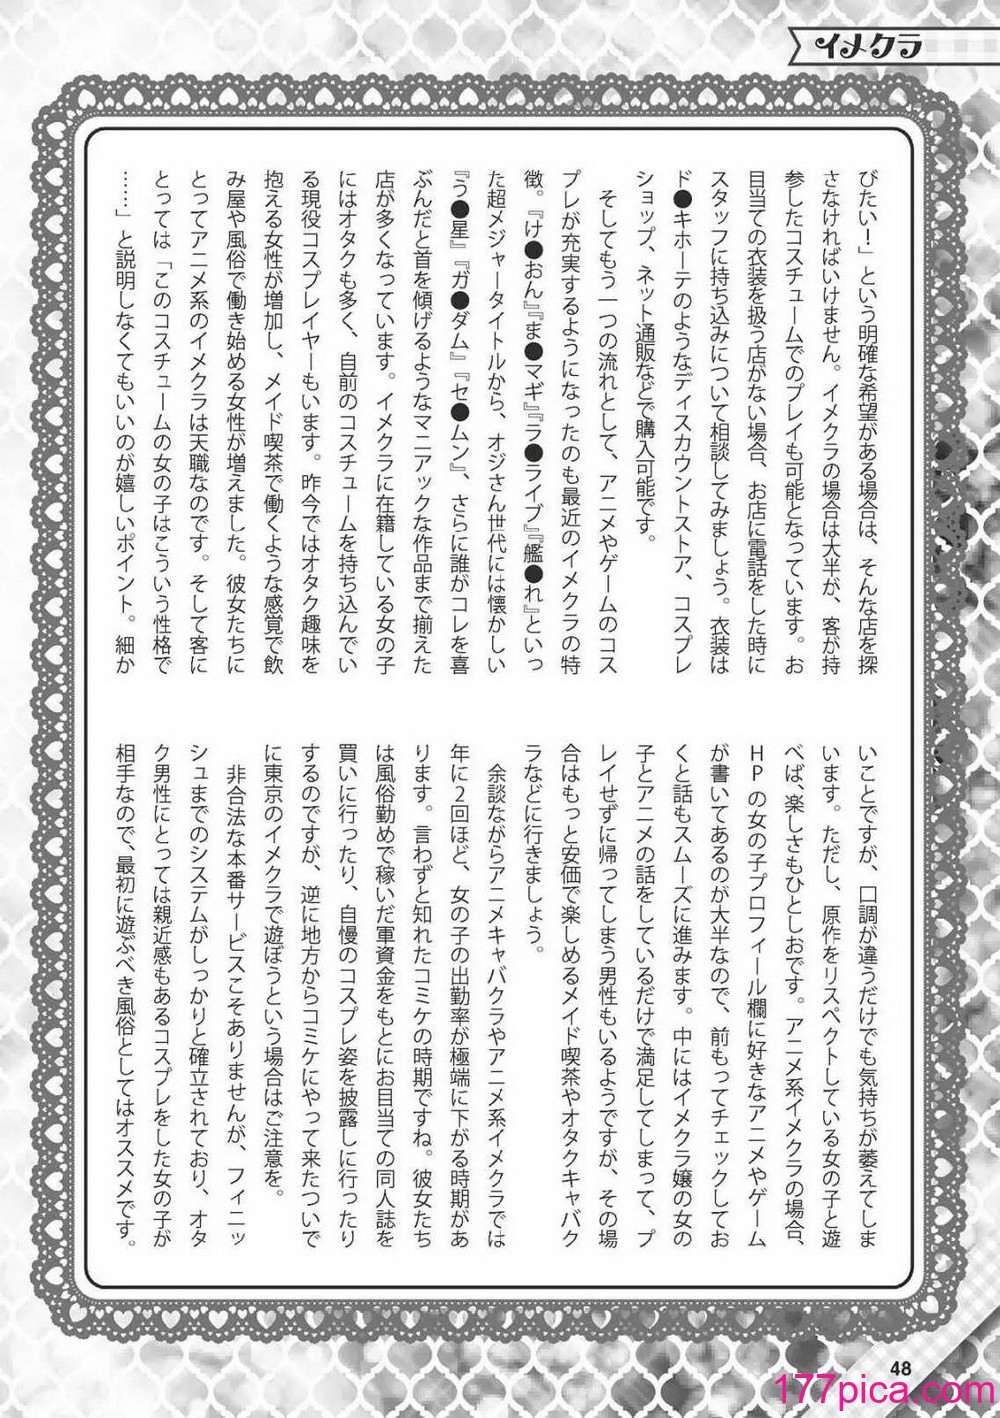 イメクラ
びたい！」という明確な希望がある場合は、そんな店を探
さなければいけません。イメクラの場合は大半が、客が持
参したコスチュームでのプレイも可能となっています。お
目当ての衣装を扱う店がない場合、お店に電話をした時に
スタッフに持ち込みについて相談してみましょう。衣装は
ド●キホーテのようなディスカウントストア、コスプレ
ショップ、ネット通販などで購入可能です。
そしてもう一つの流れとして、アニメやゲームのコス
プレが充実するようになったのも最近のイメクラの特
徴。『け●おん』『ま●マギ』『ラ●ライブ』『艦●れ』といっ
た超メジャータイトルから、オジさん世代には懐かしい
『う●星』『ガ●ダム』『セ●ムン』、さらに誰がコレを喜
ぶんだと首を傾げるようなマニアックな作品まで揃えた
店が多くなっています。イメクラに在籍している女の子
にはオタクも多く、自前のコスチュームを持ち込んでい
る現役コスプレイヤーもいます。昨今ではオタク趣味を
抱える女性が増加し、メイド喫茶で働くような感覚で飲
み屋や風俗で働き始める女性が増えました。彼女たちに
とってアニメ系のイメクラは天職なのです。そして客に
とっては「このコスチュームの女の子はこういう性格で
……」と説明しなくてもいいのが嬉しいポイント。細か
いことですが、口調が違うだけでも気持ちが萎えてしま
います。ただし、原作をリスペクトしている女の子と遊
べば、楽しさもひとしおです。アニメ系イメクラの場合、
HPの女の子プロフィール欄に好きなアニメやゲーム
が書いてあるのが大半なので、前もってチェックしてお
くと話もスムーズに進みます。中にはイメクラ嬢の女の
子とアニメの話をしているだけで満足してしまって、プ
レイせずに帰ってしまう男性もいるようですが、その場
合はもっと安価で楽しめるメイド喫茶やオタクキャバク
ラなどに行きましょう。
余談ながらアニメキャバクラやアニメ系イメクラでは
年に2回ほど、女の子の出勤率が極端に下がる時期があ
ります。言わずと知れたコミケの時期ですね。彼女たち
は風俗勤めで稼いだ軍資金をもとにお目当ての同人誌を
買いに行ったり、自慢のコスプレ姿を披露しに行ったり
するのですが、逆に地方からコミケにやって来たついで
に東京のイメクラで遊ぼうという場合はご注意を。
非合法な本番サービスこそありませんが、フィニッ
シュまでのシステムがしっかりと確立されており、オタ
ク男性にとっては親近感もあるコスプレをした女の子が
相手なので、最初に遊ぶべき風俗としてはオススメです。
48
177pica.com